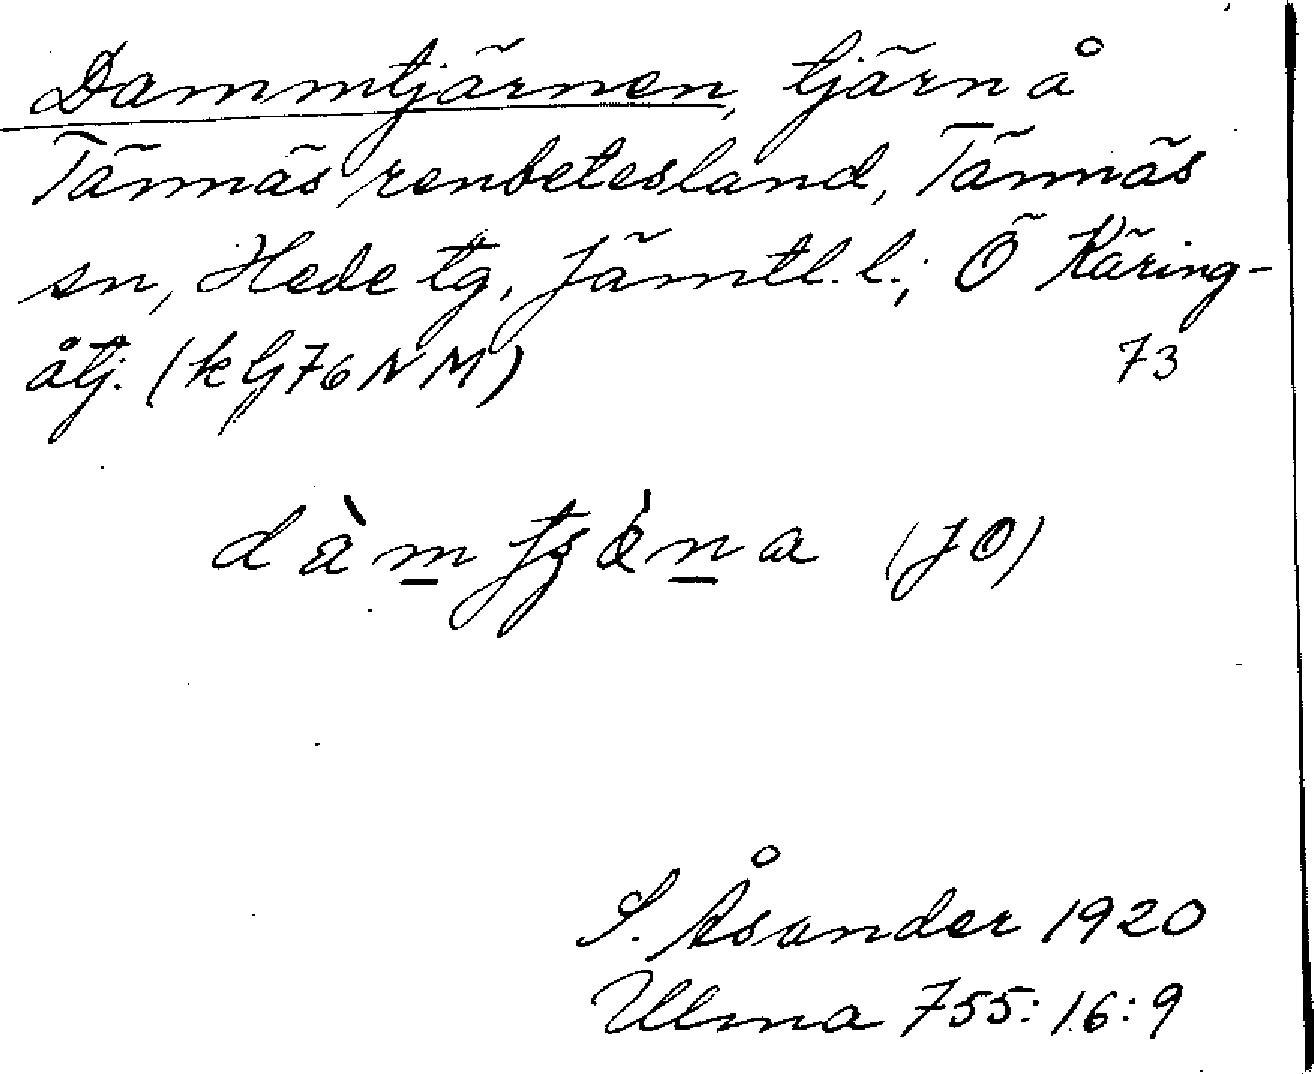 Dammtjärnen, tjärn å
Tännäs renbetesland, Tännäs
sn, Hede tg, Jämtl. l.; Ö Käring-
åtj. (k G76NM) 73
(JO)
S. Åsander 1920
Ulma 755:16:9